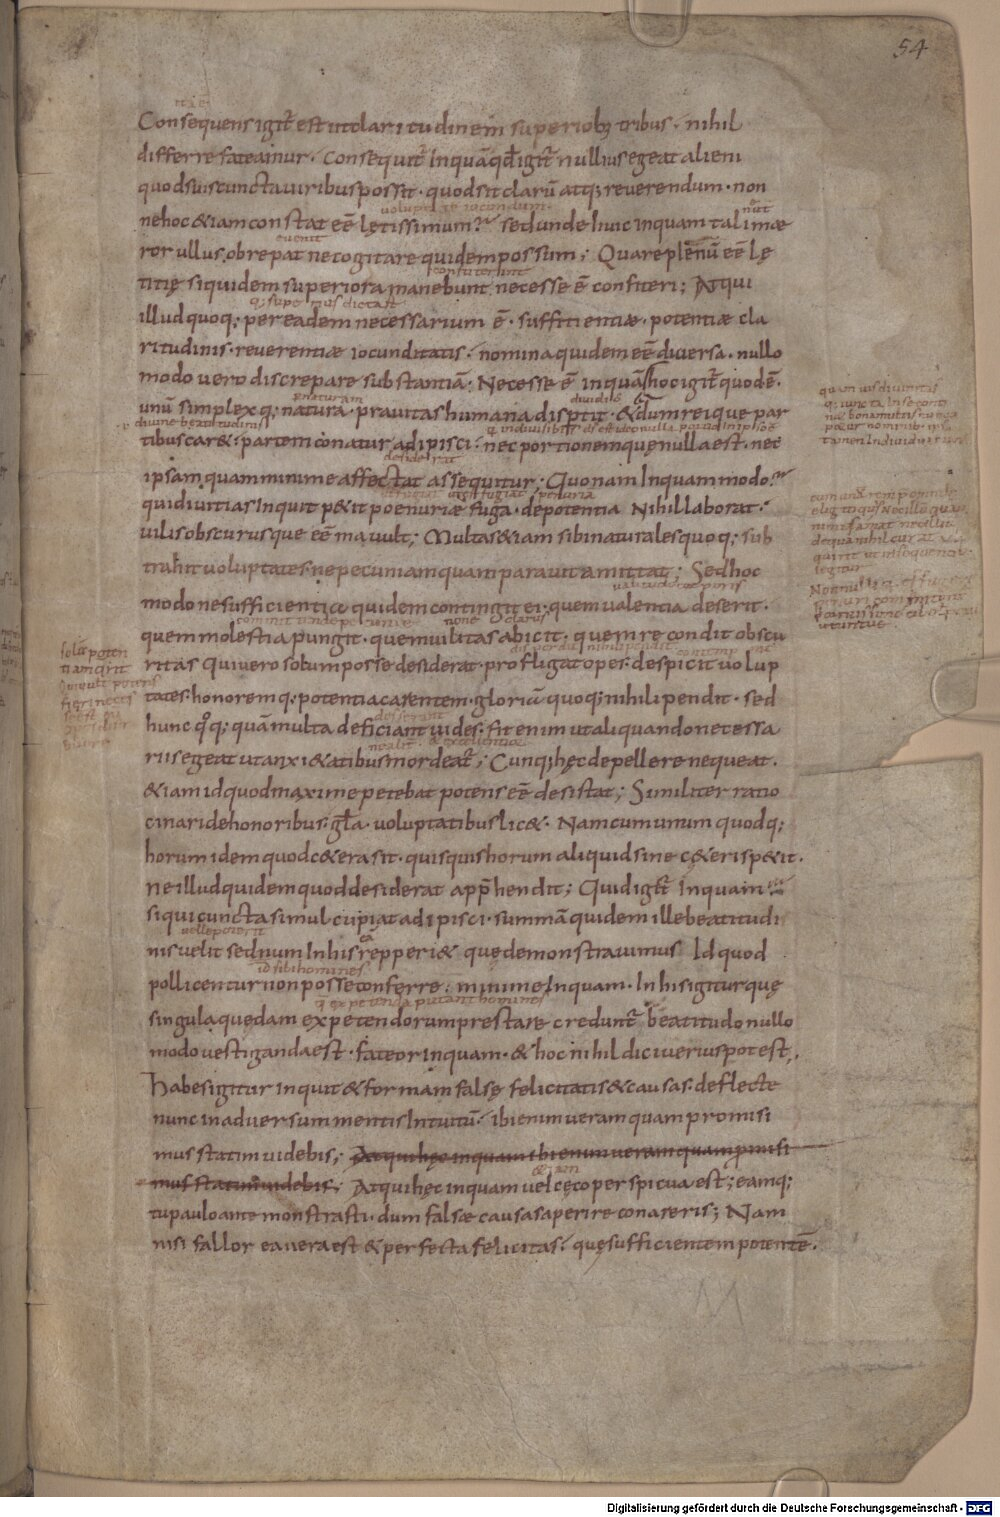 54
Consequens igit̄ est ut claritudinem superiorib; tribus · nihil
differre fateamur · Consequit̄ Inquā qđ igit̄ nullius egeat alieni
quod suis cuncta uiribus possit · quod sit clarū atq; reuerendum · non
uoluptate iocundum
ne hoc & iam constat eē lętissimum? sed unde huic inquam tali mæ
euenit
ror ullus obrepat ne cogitare quidem possum; Quare plenū eē lę
confitebunt
titię siquidem superiora manebunt necesse ē confiteri; Atqui
illud quoq; per eadem necessarium ē · sufficientiæ · potentiæ cla
ritudinis · reuerentiæ iocunditatis · nomina quidem eē diuersa · nullo
modo uero discrepare substantiā · Necesse ē inquā hoc igit̄ quod ē ·
naturam diuidit
unū simplex q; natura · prauitas humana disptit · & dum rei que par
diuine beatitudinis
tibus car& · partem conatur adipisci · nec portionem quę nulla est · nec
desiderat
ipsam quam minime affectat assequitur; Quonam Inquam modo?
penuria
qui diuitias Inquit p&it poenuriæ fuga · de potentia Nihil laborat ·
uilis obscurusque eē mauult; Multas &iam sibi naturales quoq; sub
trahit uoluptates ne pecuniam quam parauit amittat; Sed hoc
modo ne sufficientia quidem contingit ei · quem ualentia deserit ·
quem molestia pungit · quem uilitas abicit · quem recondit obscu
ritas Qui uero solum posse desiderat · profligat opes · despicit uolup
tates · honoremq; potentia carentem · gloriā quoq; nihili pendit · sed
hunc qͦq; quā multa deficiant uides · fit enim ut aliquando necessa
riis egeat ut anxi&atibus mordeat̄; Cunq; hęc depellere nequeat ·
&iam id quod maxime petebat potens eē desistat; Similiter ratio
cinari de honoribus · gl̄a · uoluptatibus lic& · Nam cum unum quodq;
horum idem quod c&era sit · quisquis horum aliquid sine c&eris p&it ·
ne illud quidem quod desiderat app̄hendit; Quid igit̄ Inquam
siqui cuncta simul cupiat adipisci · summā quidem ille beatitudi
nis uelit sed num In his repperi& quę demonstrauimus Id quod
id sibi homines
pollicentur non posse conferre · minime Inquam · In his igitur quę
q expetenda putant homines
singula quędam expetendorum prestare credunt̄ beatitudo nullo
modo uestiganda est · fateor inquam · & hoc nihil dici uerius potest,
Habes igitur inquit & formam falsę felicitatis & causas · deflecte
nunc in aduersum mentis Intuitū · ibi enim ueram quam promisi
mus statim uidebis; Atqui hęc inquam ibi enim ueram quam p̄misi
mus statim uidebis; Atqui hęc inquam uel cęco perspicua est; eamq;
tu paulo ante monstrasti · dum falsæ causas aperire conareris; Nam
nisi fallor ea uera est & perfecta felicitas · quę sufficientem potentē ·
Digitalisierung gefördert durch die Deutsche Forschungsgemeinschaft - DFG